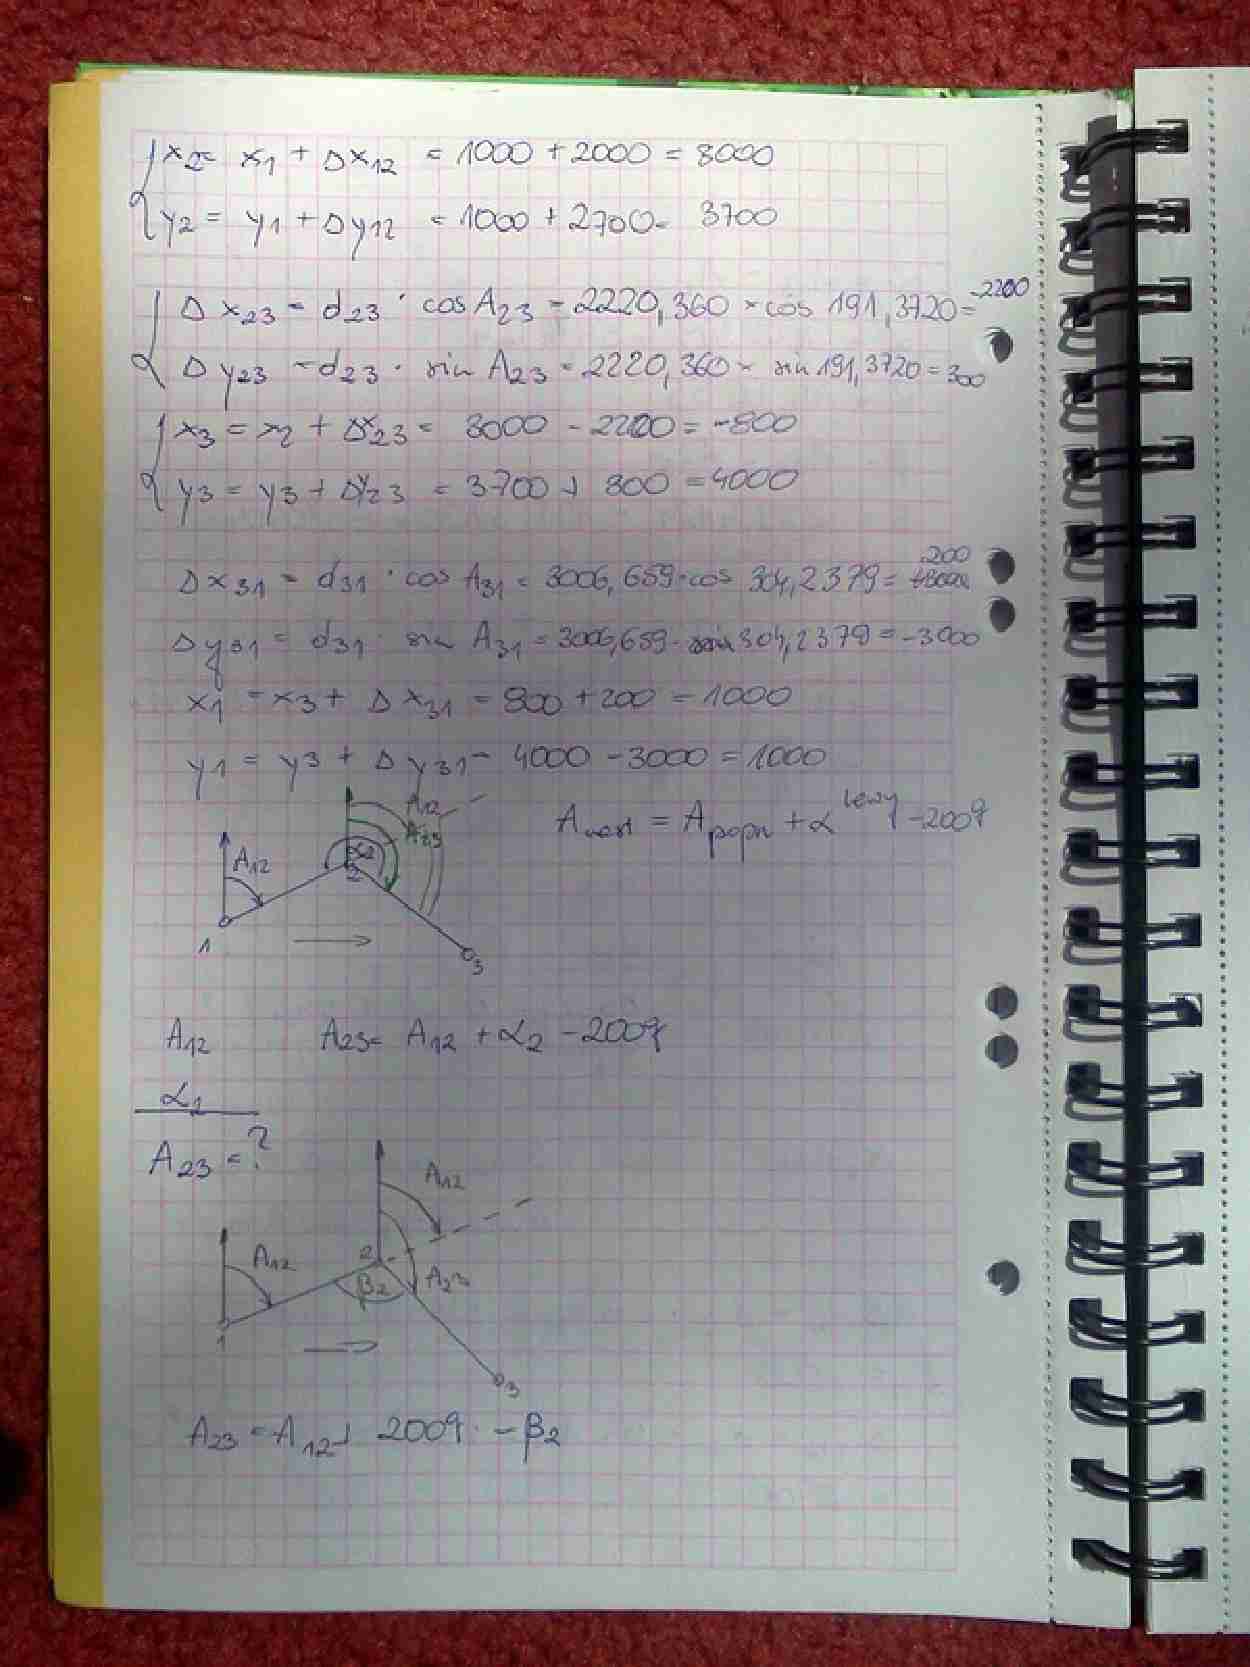 x2 = x1 + Δx12 = 1000 + 2000 = 3000
y2 = y1 + Δy12 = 1000 + 2700 = 3700
Δx23 = d23 · cos A23 = 2220,360 · cos 191,3720 = -2200
Δy23 = d23 · sin A23 = 2220,360 · sin 191,3720 = 300
x3 = x2 + Δx23 = 3000 - 2200 = -800
y3 = y3 + Δy23 = 3700 + 300 = 4000
Δx31 = d31 · cos A31 = 3006,659 · cos 304,2379 = 200
Δy31 = d31 · sin A31 = 3006,659 · sin 304,2379 = -3000
x1 = x3 + Δx31 = 800 + 200 = 1000
y1 = y3 + Δy31 = 4000 - 3000 = 1000
A12
A23
A nast = A popn + α lewy - 200g
A12
α2
2
1
3
A12 A23 = A12 + α2 - 200g
α2
A23 = ?
A12
A12
2
β2
A23
1
3
A23 = A12 + 200g - β2